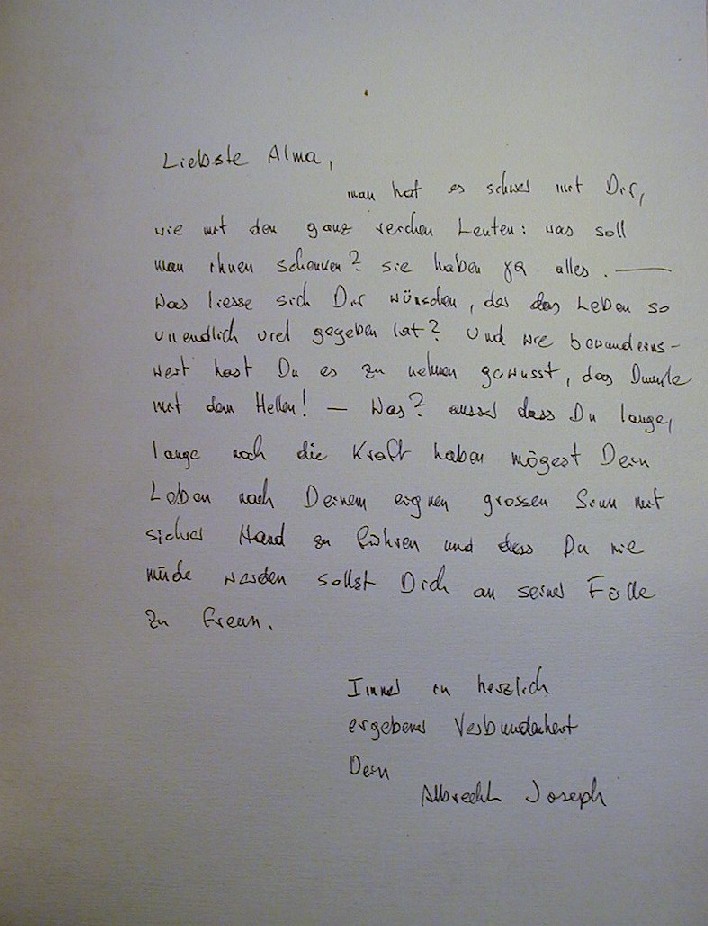 Liebste Alma,
man hat es schwer mit Dir,
wie mit den ganz reichen Leuten: was soll
man ihnen schenken? sie haben ja alles. —
Was liesse sich Dir wünschen, das das Leben so
unendlich viel gegeben hat? Und wie bewunderns-
wert hast Du es zu nehmen gewusst, das Dunkle
mit dem Hellen! — Was? ausser dass Du lange,
lange noch die Kraft haben mögest Dein
Leben nach Deinem eignen grossen Sinn mit
sicher Hand zu führen und dass Du nie
müde werden sollst Dich an seiner Fülle
zu freun.
Immer in herzlich
ergebener Verbundenheit
Dein
Albrecht Joseph